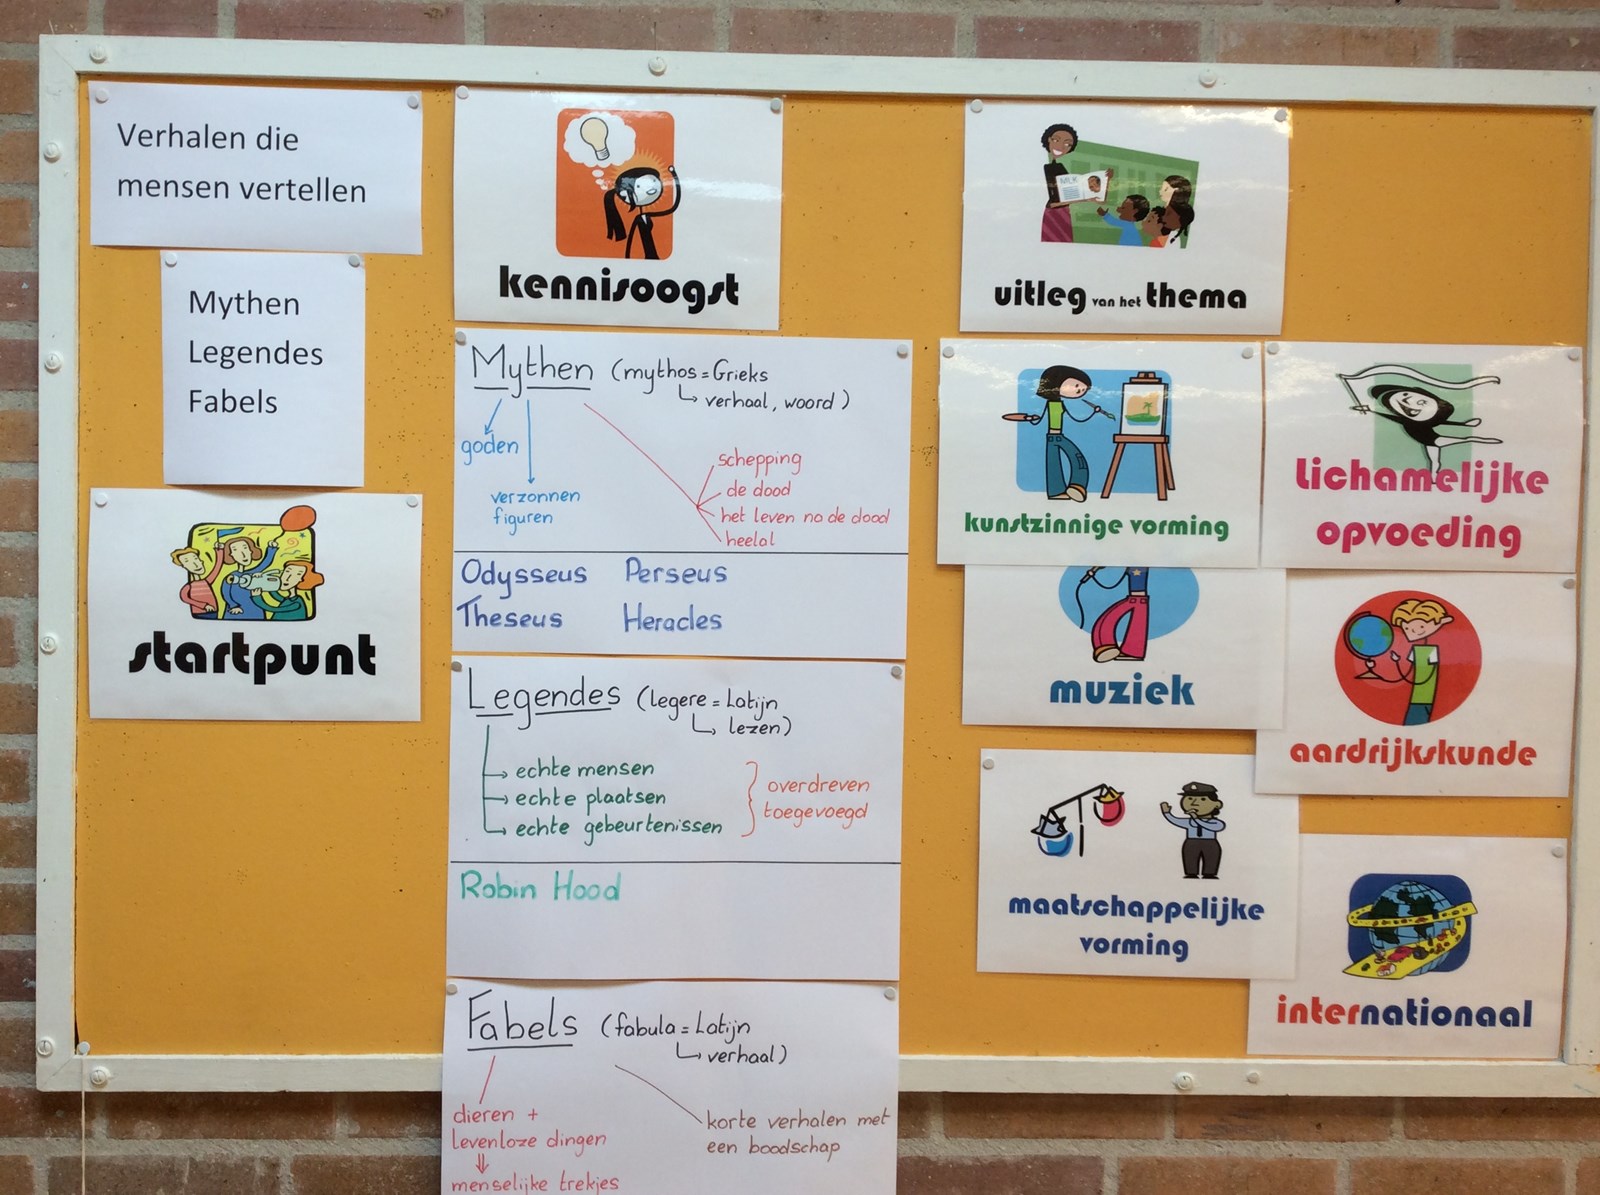 Verhalen die
mensen vertellen
Mythen
Legendes
Fabels
startpunt
kennisoogst
Mythen (mythos = Grieks
↳ verhaal, woord)
goden
verzonnen
figuren
schepping
de dood
het leven na de dood
heelal
Odysseus Perseus
Theseus Heracles
Legendes (legere = Latijn
↳ lezen)
echte mensen
echte plaatsen
echte gebeurtenissen
overdreven
toegevoegd
Robin Hood
Fabels (fabula = Latijn
↳ verhaal)
dieren +
levenloze dingen
menselijke trekjes
korte verhalen met
een boodschap
uitleg van het thema
kunstzinnige vorming
Lichamelijke
opvoeding
muziek
aardrijkskunde
maatschappelijke
vorming
internationaal